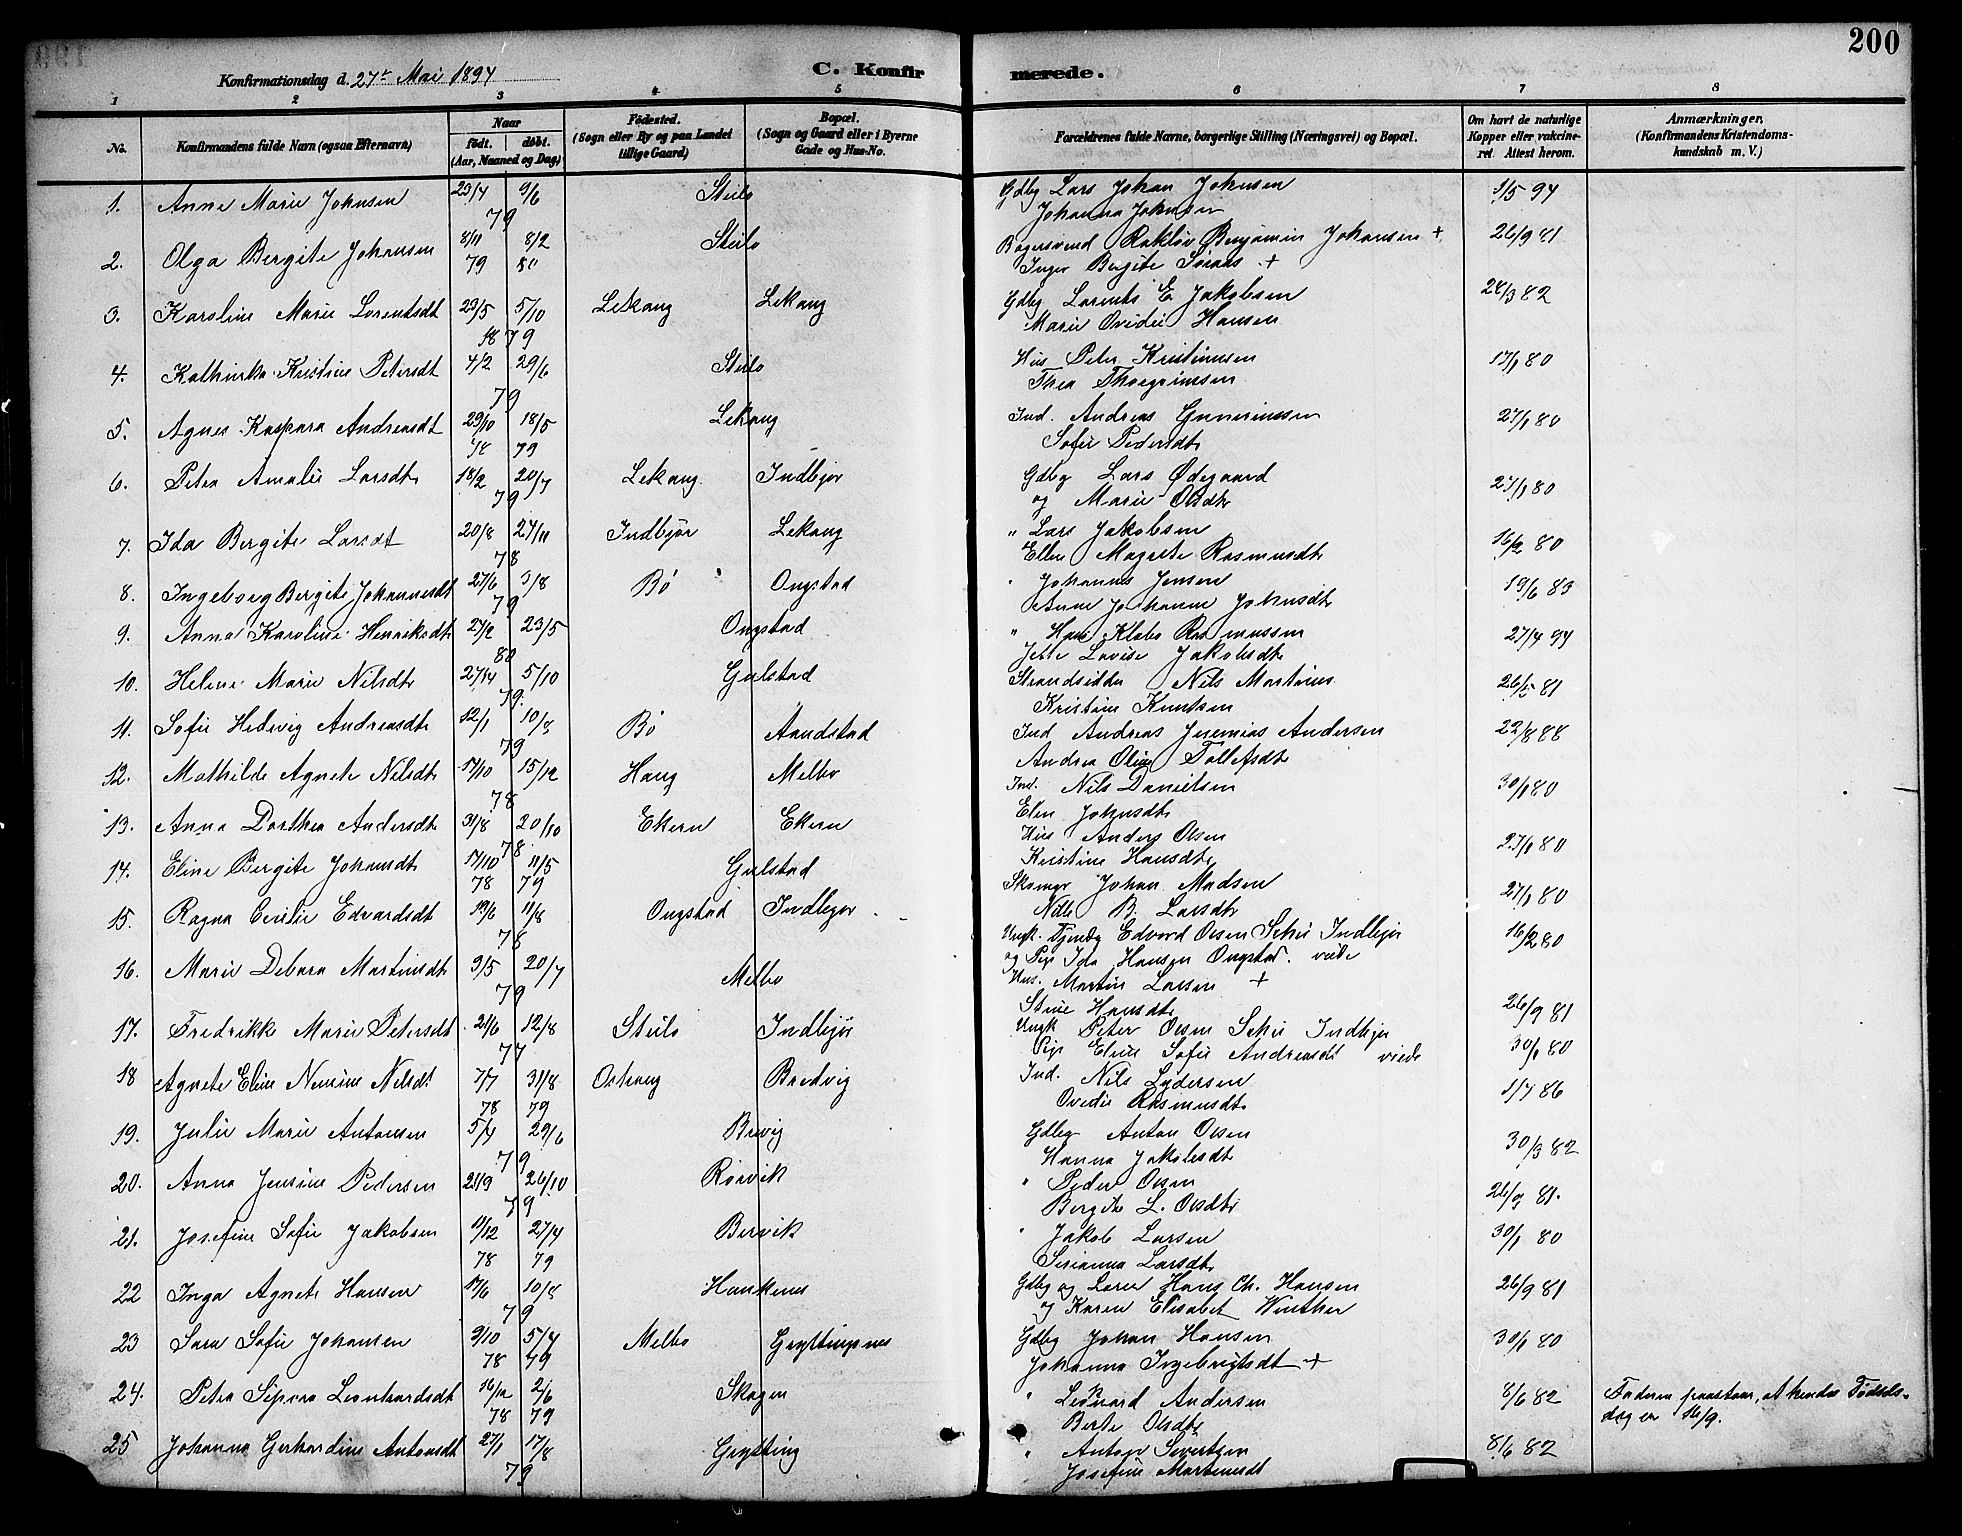 200
Konfirmationsdag d. 27de Mai 1894
C. Konfirmerede.
1 2 3 4 5 6 7 8
No.
Konfirmandens fulde Navn (ogsaa Efternavn)
Naar
født. døbt.
(Aar, Maaned og Dag)
Fødested.
(Sogn eller By og paa Landet
tillige Gaard)
Bopæl.
(Sogn og Gaard eller i Byerne
Gade og Hus-No.
Forældrenes fulde Navne, borgerlige Stilling (Næringsvei) og Bopæl.
Om havt de naturlige
Kopper eller vakcine-
ret. Attest herom.
Anmærkninger,
(Konfirmandens Kristendoms-
kundskab m. V.)
1. Anne Marie Johnsen 29/4 9/6 79 Steilo Gdbg Lars Johan Johnsen 1/5 94
Johanna Johnsen
2. Olga Bergite Johansen 8/11 79 8/2 80 Steilo Johansen + 26/9 81
Inger Bergite +
3. Karoline Marie Lorentsdt 23/5 5/10 79 Lekang Lekang Gdbg Lorents E. Jakobsen 28/3 82
Marie Ovidie Hansen
4. Kathinka Kristine Petersdt 4/2 29/6 79 Steilo Hus Peter Kristiansen 17/1 80
Thea
5. Agnes Kaspara Andreasdt 29/10 78 18/5 79 Lekang Ind. Andreas 27/1 80
Sofie Pedersdt
6. Petra Amalie Larsdt 18/2 20/7 79 Lekang Indbjør Gdbg Lars Ødegaard 27/1 80
og Marie Olsdt
7. Ida Bergite Larsdt 20/8 27/11 78 Indbjør Lekang " Lars Jakobsen 16/2 80
Ellen Magrete Rasmusdt
8. Ingeborg Bergite Johannesdt 27/6 3/8 79 Bø Ongstad " Johannes Jensen 19/6 83
Anne Johanna Johnsdt
9. Anna Karoline Henriksdt 27/2 23/5 80 Ongstad " Rasmussen 27/4 94
Lovise Jakobsdt
10. Helene Marie Nilsdt 5/10 79 Gulstad Strandsidder Nils Martinus 26/5 81
Kristine Knutsen
11. Sofie Hedevig Andreasdt 12/1 10/8 79 Bø Aandstad Ind Andreas Jeremias Andersen 22/8 88
Andrea Oline Tollefsdt
12. Mathilde Agnete Nilsdt 17/10 15/12 78 Haug Melbo Ind. Nils Danielsen 30/1 80
Elen Johnsdt
13. Anna Dorthea Andersdt 31/8 20/10 78 Ekern Ekern Hus Anders Olsen 27/1 80
Kristine Hansdt
14. Eline Bergite Johansdt 17/10 78 11/5 79 Gulstad Johan Madsen 27/1 80
B. Larsdt
15. Ragna Cecilie Edvardsdt 19/6 11/8 78 Ongstad Indbjør Ungk. Tjendg Edvard Olsen Indbjør 16/2 80
og Pige Ida Hansen Ongstad
16. Marie Debora Martinsdt 9/5 20/7 79 Melbo Hus. Martin Larsen + 26/9 81
Stine Hansdt
17. Fredrikke Marie Petersdt 21/6 12/8 77 Steilo Indbjør Ungk Peter Olsen Indbjør 30/1 80
Pige Eline Sofie Andreasdt
18 Agnete Eline Nensine Nilsdt 7/7 78 31/8 79 Bredvig Ind. Nils Lydersen 1/7 86
Ovidie Rasmusdt
19. Julie Marie Antonsen 5/4 29/6 79 Brevig Gdbg Anton Olsen 30/3 82
Hanna Jakobsdt
20. Anna Jensine Pedersen 21/9 26/10 79 Rørvik " Peder Olsen 26/9 81.
Bergite L. Olsdt
21. Josefine Sofie Jakobsen 11/12 78 27/4 79 Bervik " Jakob Larsen 30/1 80
Serianna Larsdt
22 Inga Agnete Hansen 17/6 10/8 79 Haukenes Gdbg og Lærer Hans Ch. Hansen 26/9 81
og Karen Elisabet Winther
23 Sara Sofie Johansen 9/10 78 5/4 79 Melbo Gryttingnes Gdbg Johan Hansen 30/1 80
Johanna Ingebrigtsdt +
24. Petra Sipora Leonhardsdt 16/12 78 2/6 79 Skagen " Leonard Andersen 8/6 82 Faderen paastaar, at hendes Fødsels-
dag er 16/9.
Berte Olsdt
25 Johanna Gerhardine Antonsdt 27/1 17/8 79 Grytting " Anton Sivertsen 8/6 82
Josefine Martinusdt